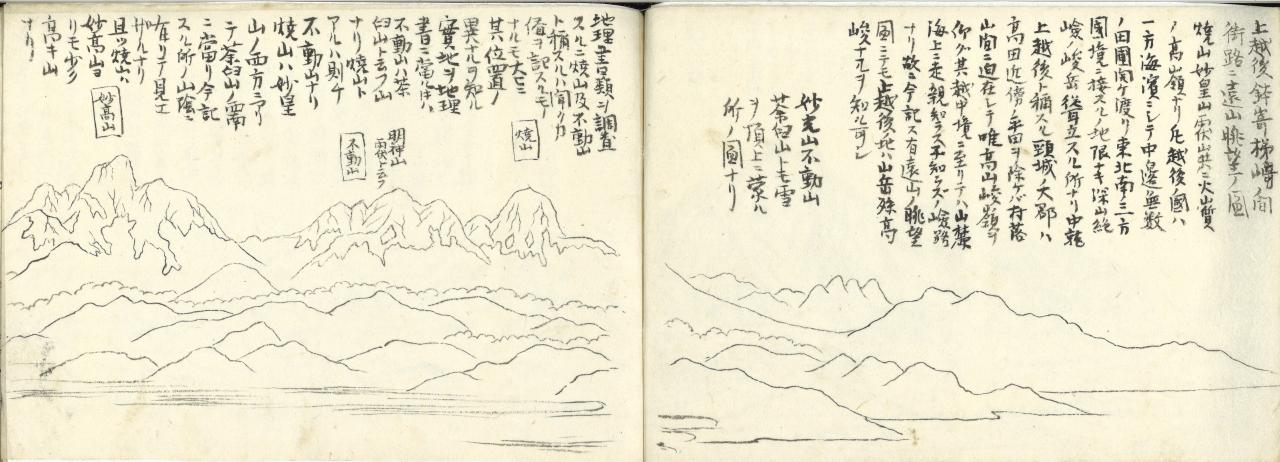 上越後鉢嵜梯嶹ノ間
街路ニ遠山眺望ノ圖
焼山妙皇山雨伏山共ニ火山質
ノ高山嶺ナリ凡越後國ハ
一方海濱ニシテ中邊無数
ノ田圃開ケ渡リ東北南三方
國境ニ接スルノ地限ナキ深山絶
嶮ノ峻岳従耳立スル所ナリ中就
上越後ト稱スル頸城ノ大郡ハ
高田近傍ノ平田ヲ除ケバ村落
山間ニ迫在シテ唯高山峻嶺ヲ
仰グ其越中境ニ至リテハ山麓
海上ニ走親知ラズ子知ラズノ嶮路
ナリ故ニ今記ス有遠山ノ眺望
圖ニテモ上越後地ハ山岳殊高
峻ナルヲ知ル可シ
妙光山不動山
茶臼山トモ雪
ヲ頂上ニ蒙ル
所ノ圖ナリ
地理全書類ヲ調査
スルニ焼山及不動山
ト稱スルハ聞クカ
儘ヲ記スルモ
ナルモ大ニ
其位置ノ
異ナルヲ知ル
實地ヲ地理
書ニ當ルハ
不動山ハ茶
臼山ト云フ山
ナリ焼山ト
アルハ則チ
不動山ナリ
焼山ハ妙皇
山ノ西方ニアリ
テ茶臼山ノ

ニ當リ今記
スル所ノ山陰ニ
在リテ見エ
ザルナリ
且ツ焼山ハ
妙高山ヨ
リモ少
高キ山
ナリ
焼山
明神山
雨伏ト云フ
不動山
妙高山